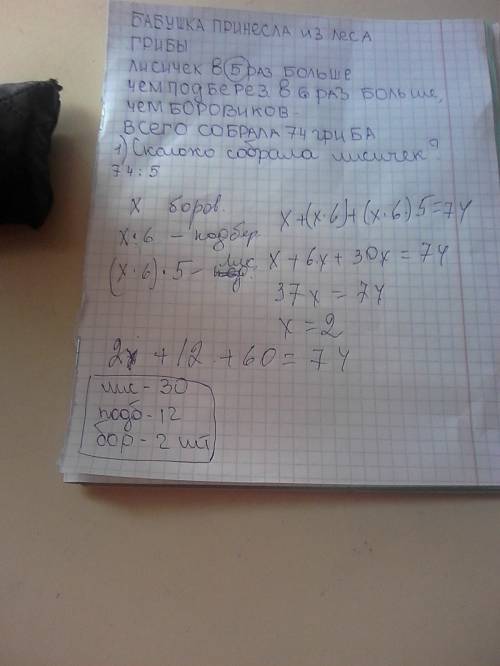 БАБУШКА ПРИНЕСЛА ИЗ ЛЕСА
ГРИБЫ
ЛИСИЧЕК В 5 РАЗ БОЛЬШЕ
ЧЕМ ПОДБЕРЕЗ В 6 РАЗ БОЛЬШЕ,
ЧЕМ БОРОВИКОВ.
ВСЕГО СОБРАЛА 74 ГРИБА
1) Сколько собрала лисичек?
74:5
x боров.
x·6 - подбер
(x·6)·5 - лис.
x+(x·6)+(x·6)5=74
x+6x+30x=74
37x=74
x=2
2x+12+60=74
лис-30
подб-12
бор-2 шт